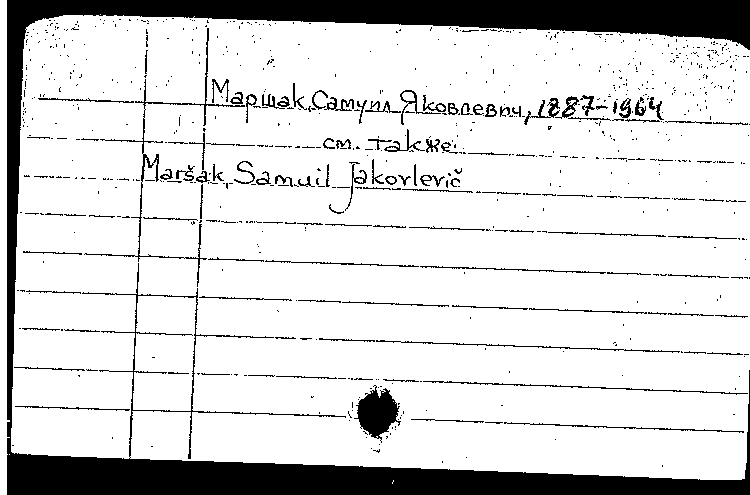 Маршак, Самуил Яковлевич, 1887-1964
см. также:
Maršak, Samuil Jakovlevič